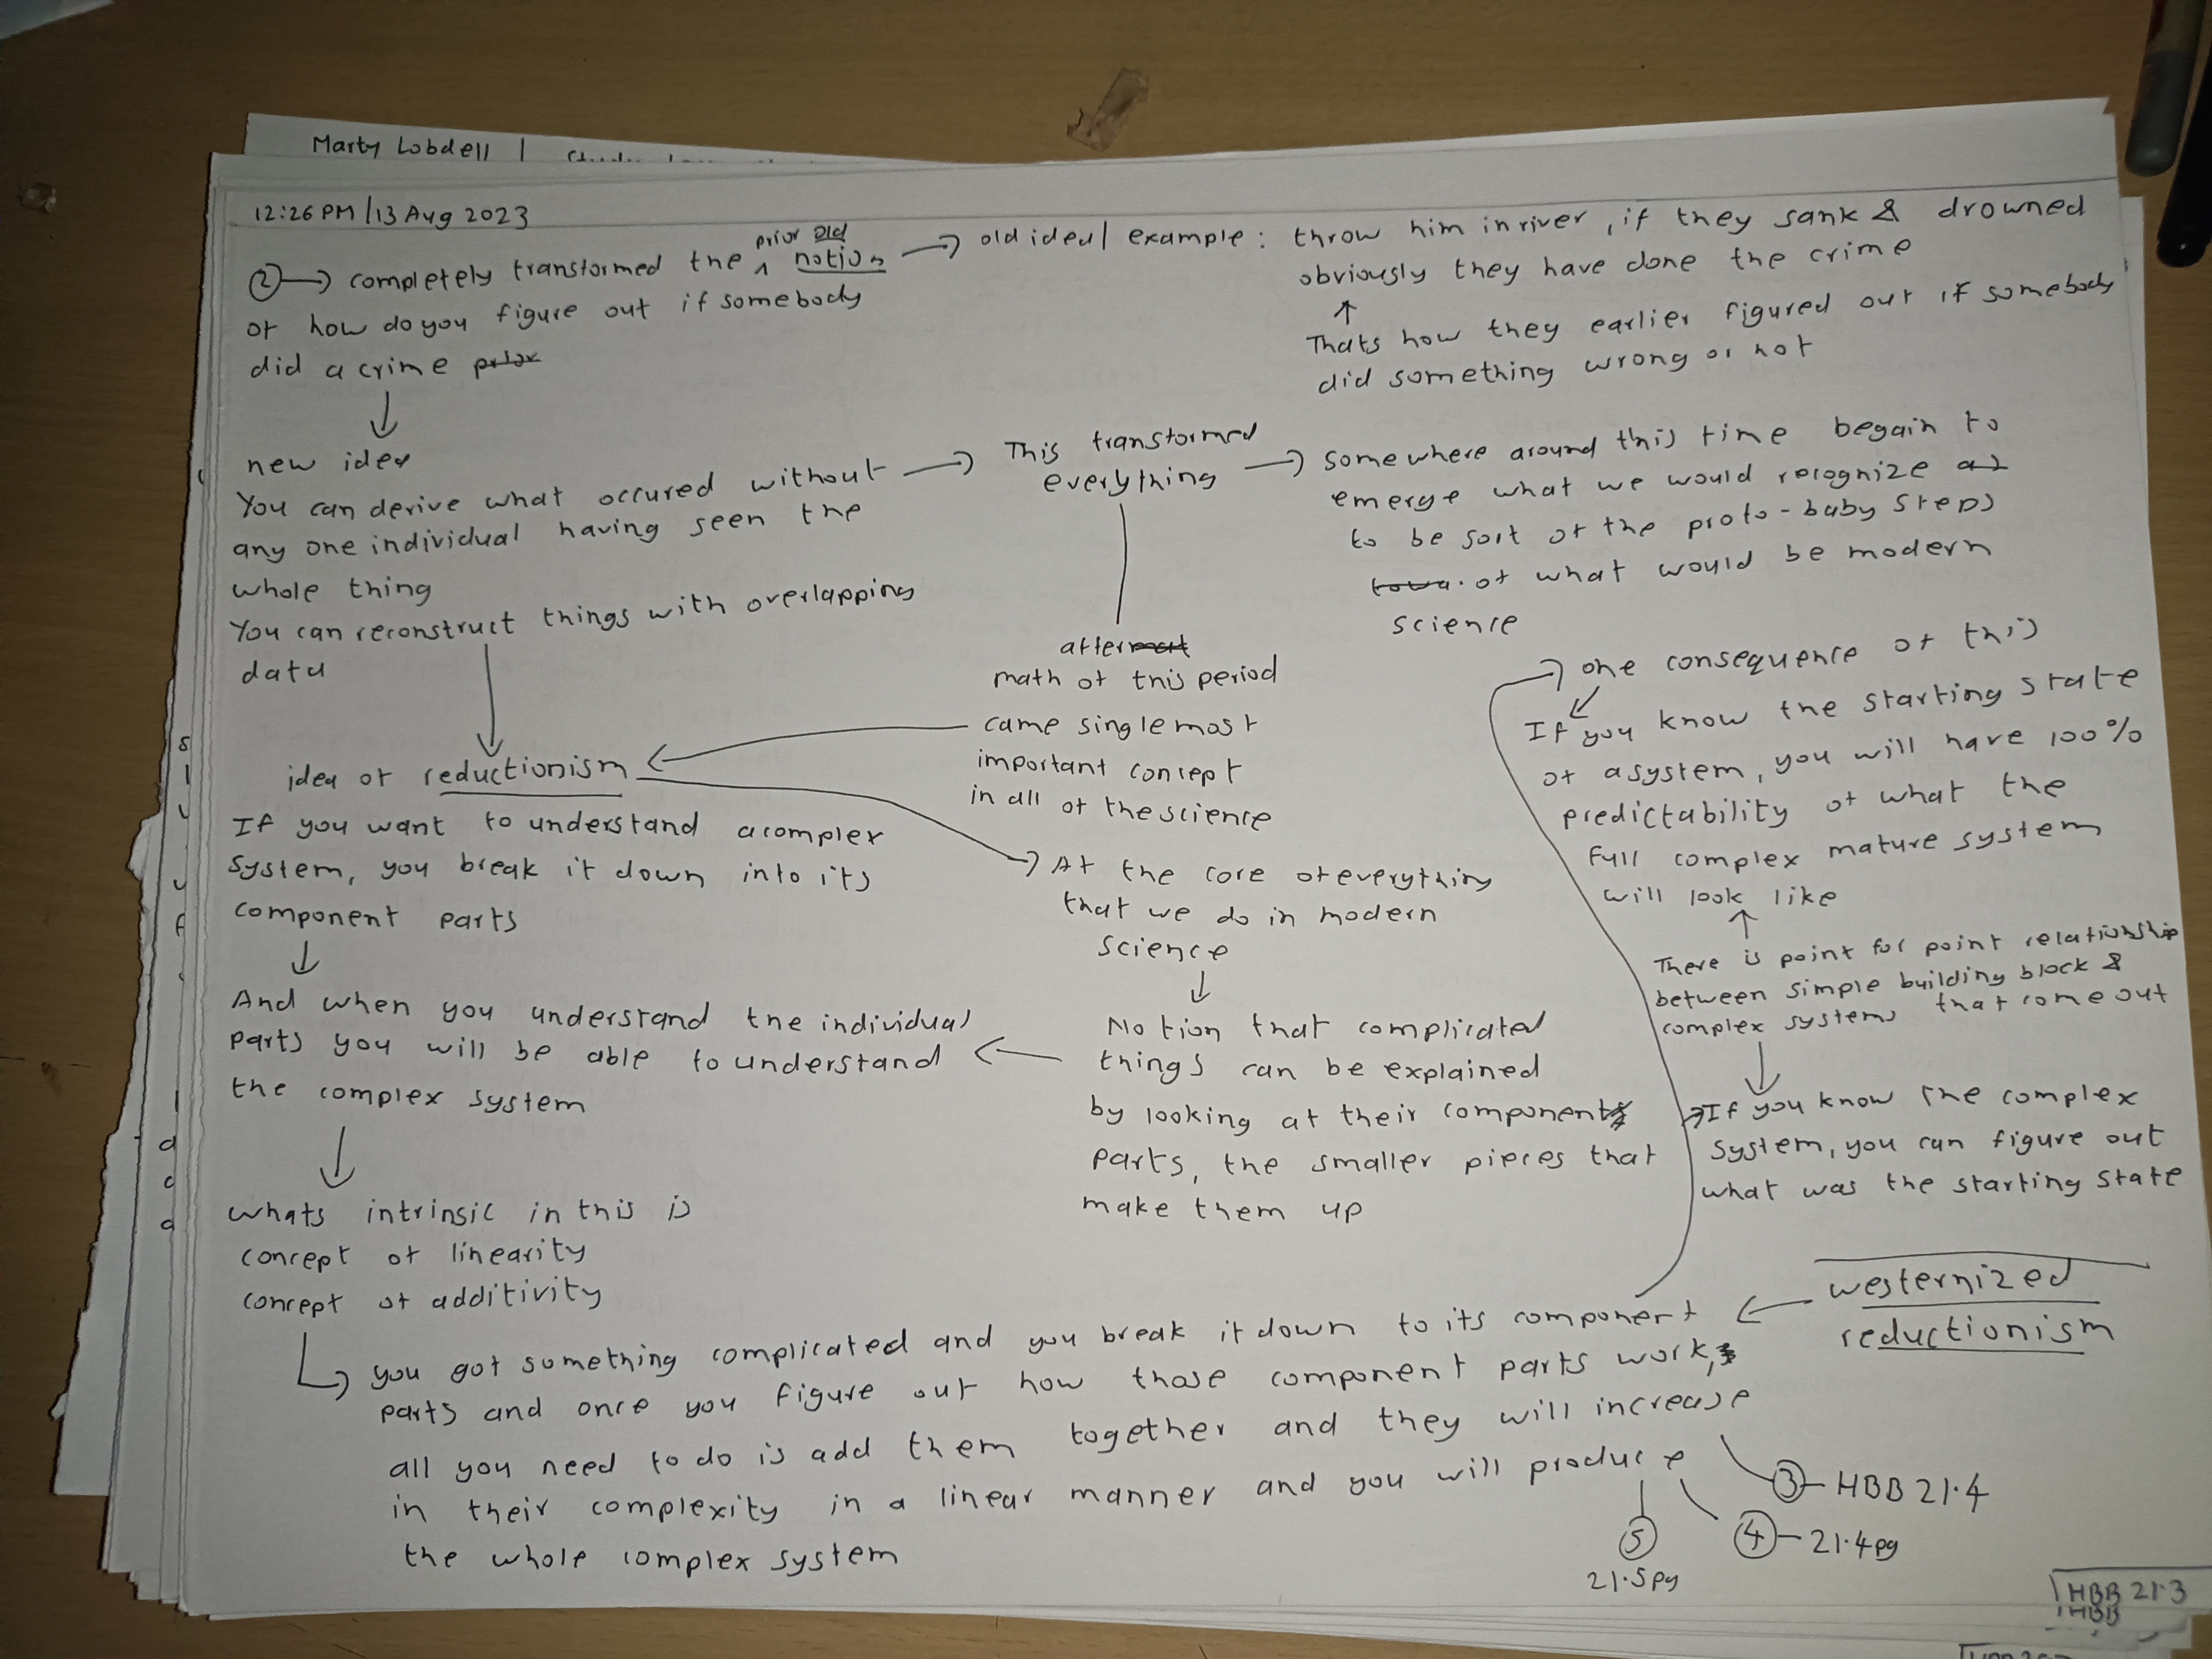 Marty Lobdell |
12:26 PM | 13 Aug 2023
② → completely transformed the prior old notion
of how do you figure out if somebody
did a crime prior
→ old idea / example : throw him in river , if they sank & drowned
obviously they have done the crime
↑
Thats how they earlier figured out if somebody
did something wrong or not
↓
new idea
You can derive what occured without
any one individual having seen the
whole thing
You can reconstruct things with overlapping
data
→ This transformed
everything
→ somewhere around this time begain to
emerge what we would recognize as
to be sort of the proto - baby steps
of what would be modern
science
aftermath
math of this period
came single most
important concept
in all of the science
idea of reductionism
If you want to understand a complex
system, you break it down into its
component parts
↓
And when you understand the individual
parts you will be able to understand
the complex system
↓
whats intrinsic in this is
concept of linearity
concept of additivity
→ At the core of everything
that we do in modern
science
↓
Notion that complicated
things can be explained
by looking at their component
parts, the smaller pieces that
make them up
→ one consequence of this
↓
If you know the starting state
of a system, you will have 100%
predictability of what the
full complex mature system
will look like
↑
There is point for point relationship
between simple building block &
complex systems that come out
↓
→ If you know the complex
system, you can figure out
what was the starting state
westernized
reductionism
→ you got something complicated and you break it down to its component
parts and once you figure out how those component parts work,
all you need to do is add them together and they will increase
in their complexity in a linear manner and you will produce
the whole complex system
③ - HBB 21.4
④ - 21.4pg
⑤
21.5pg
HBB 21.3
HBB